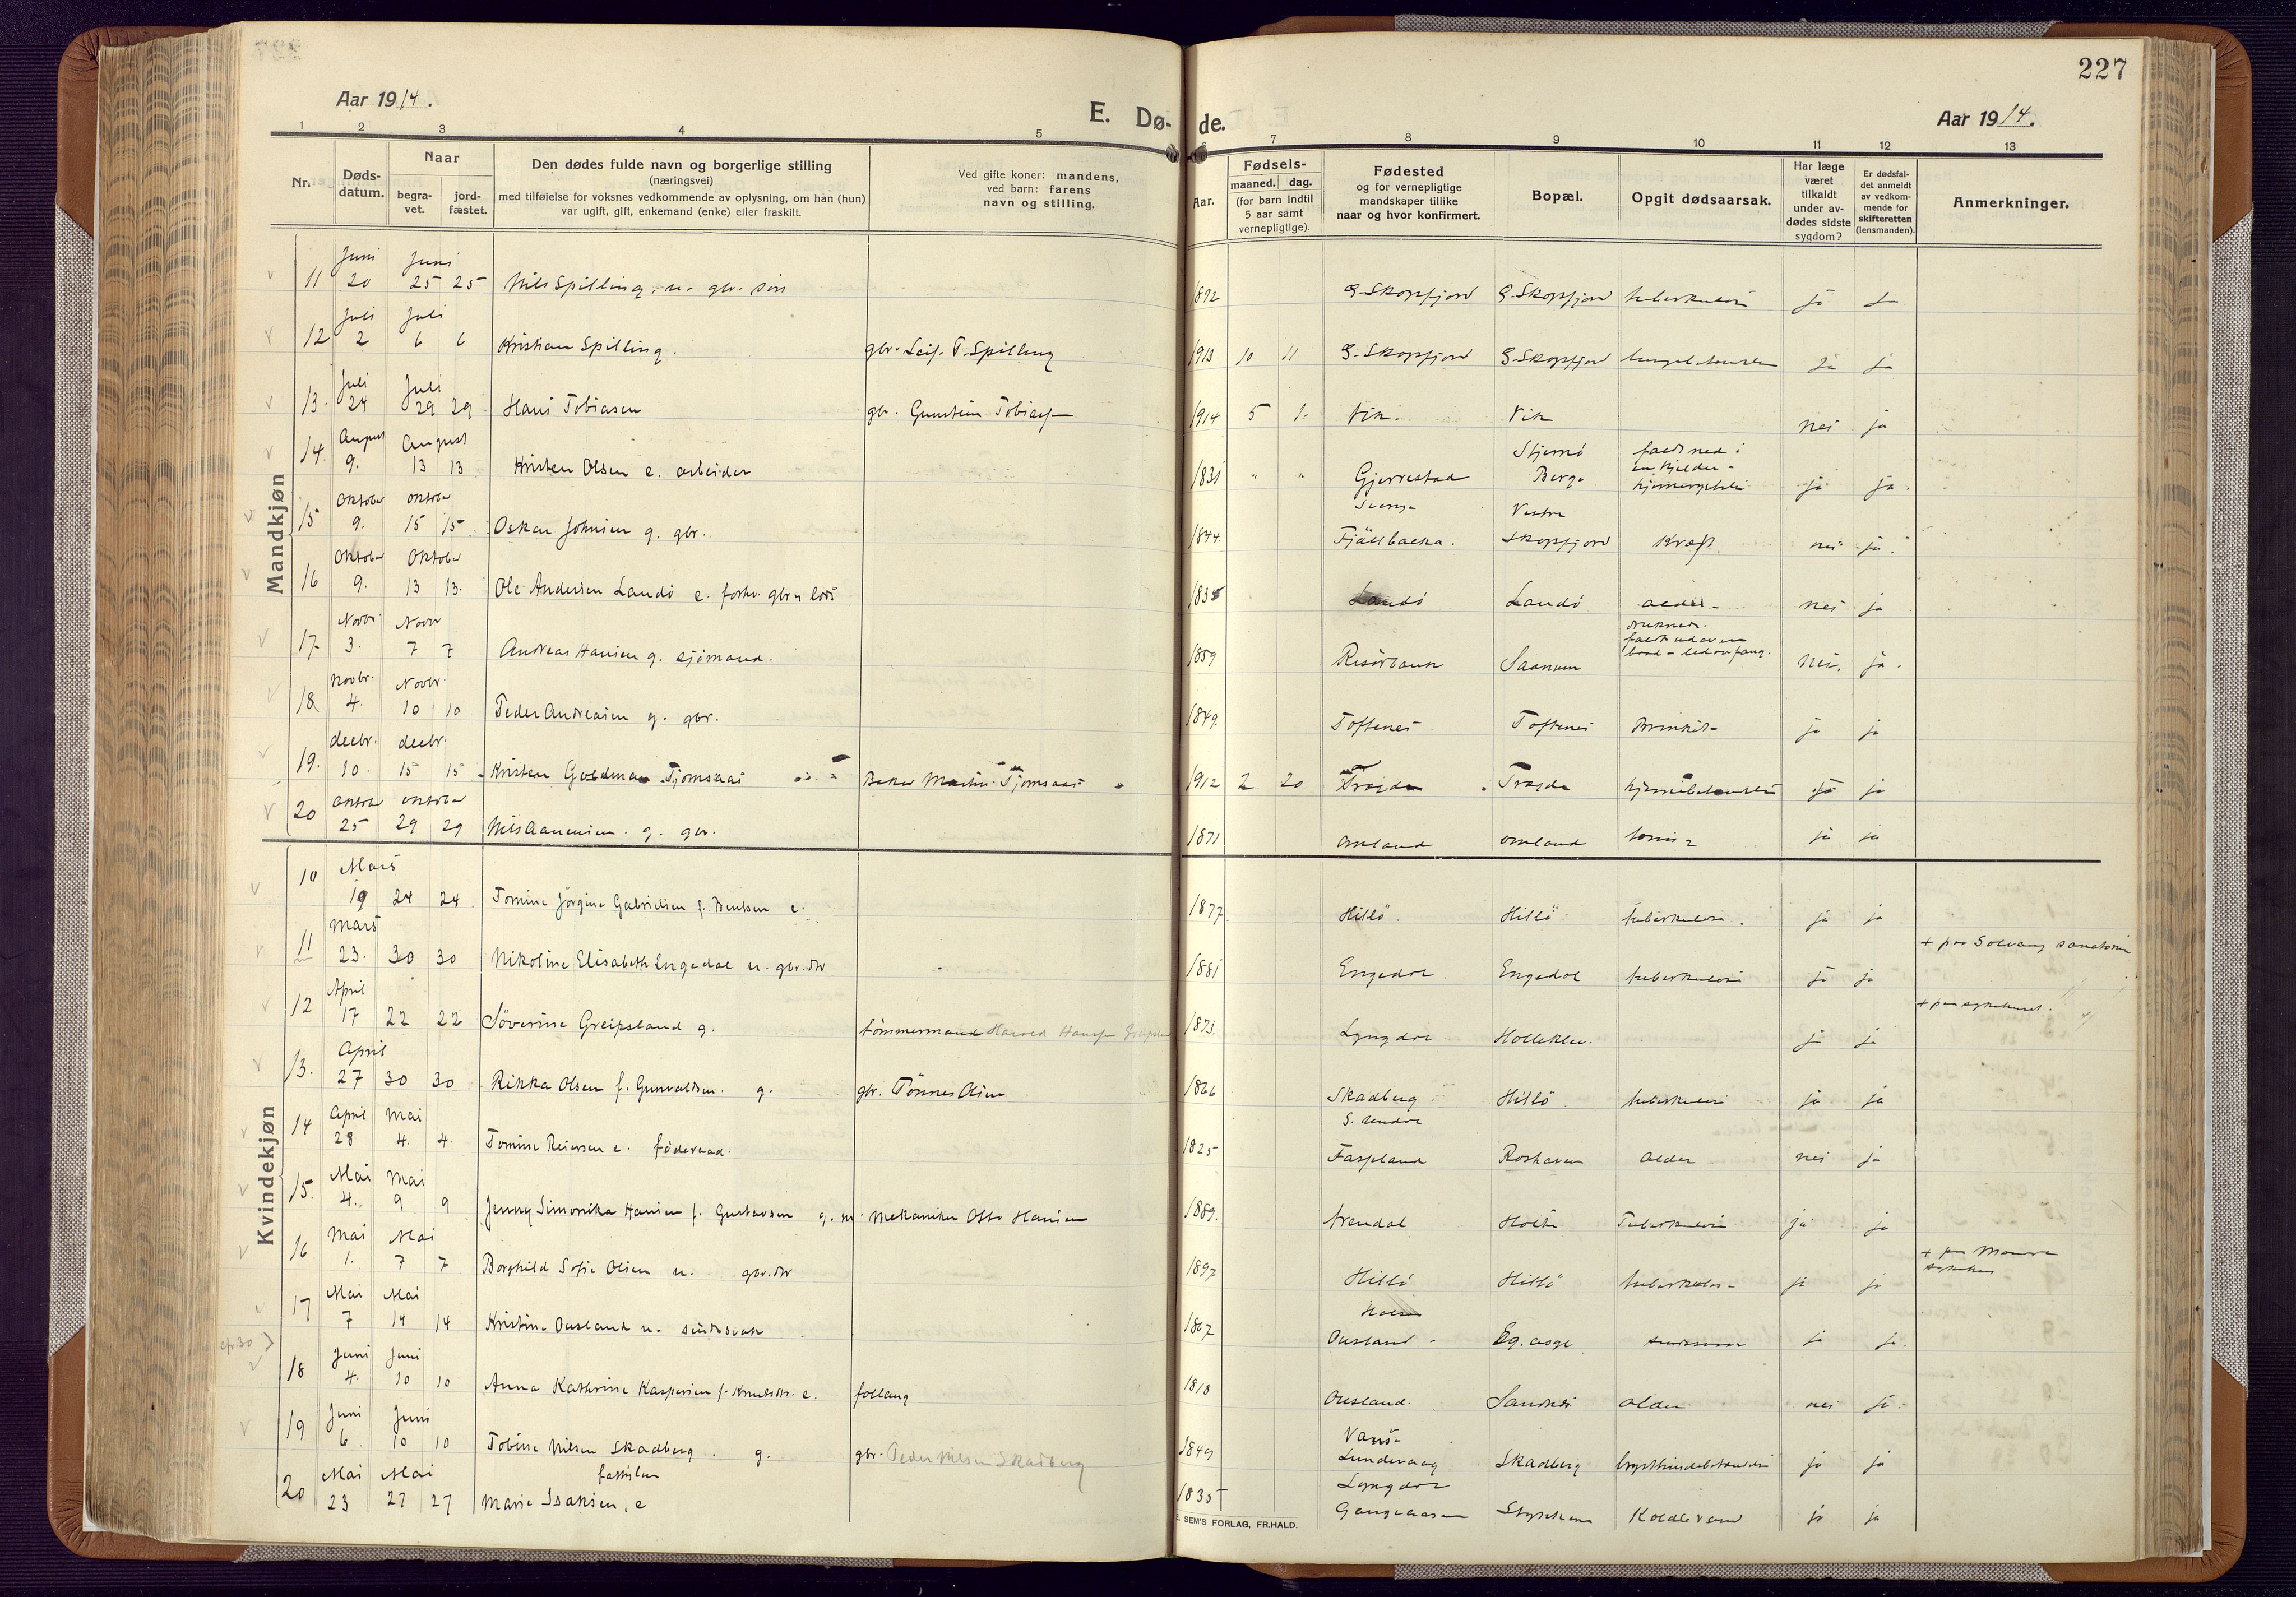 227
Aar 1914.
E. Dø-
de.
Aar 1914.
1 2 3 4 5 7 8 9 10 11 12 13
Nr.
Døds-
datum.
Naar
begra-
vet.
jord-
fæstet.
Den dødes fulde navn og borgerlige stilling
(næringsvei)
med tilføielse for voksnes vedkommende av oplysning, om han (hun)
var ugift, gift, enkemand (enke) eller fraskilt.
Ved gifte koner: mandens,
ved barn: farens
navn og stilling.
Aar.
Fødsels-
maaned. dag.
(for barn indtil
5 aar samt
vernepligtige).
Fødested
og for vernepligtige
mandskaper tillike
naar og hvor konfirmert.
Bopæl.
Opgit dødsaarsak.
Har læge
været
tilkaldt
under av-
dødes sidste
sygdom?
Er dødsfal-
det anmeldt
av vedkom-
mende for
skifteretten
(lensmanden).
Anmerkninger.
Mandkjøn
Juni Juni
11 20 25 25 Nils Spilling, u. gbr. søn 1892 S. Skogsfjord S. Skogsfjord tuberkulose ja ja
Juli Juli
12 2 6 6 Kristian Spilling. gbr. Leif T. Spilling 1913 10 11 S. Skogsfjord S. Skogsfjord ja ja
Juli Juli
13. 24 29 29 Hans Tobiasen gbr. Gunstein Tobias 1914 5 1. Vik. Vik nei ja
August August Stjernø faldt ned i
14. 9. 13 13 Kristen Olsen e. arbeider 1831 " " Gjerrestad Berge en kjelder - ja ja.
Oktober Oktober Sverige Vestre
15 9. 15 15 Oskar Johnsen g. gbr. 1844 Fjällbacka. Skogsfjord Kræft nei ja.
Oktober Oktober
16 9. 13 13. Ole Andersen Landø e. forhv. gbr. & lods 1835 Landø Landø alder nei ja
Novbr Novbr druknet.
17 3. 7 7 Andreas Hansen g. sjømand. 1859 Risørbank Saanum faldt ud av en nei. ja.
baad -
Novbr. Novbr.
18 4. 10 10 Peder Andreasen g. gbr. 1849. Toftenes Toftenes Bronkit ja ja
decbr. decbr.
19. 10. 15 15 Kristen Goldman Tjomsaas Baker Martin Tjomsaas 1912 2 20 Tregde Tregde ja ja
oktober oktober
20 25 29 29 Nils Aanensen. g. gbr. 1871 Omland Omland ja ja
Kvindekjøn
Mars
10 19 24 24 Tomine Jørgine Gabrielsen f. Bentsen e. 1877. Hillø. Hillø tuberkulose. ja ja
Mars + paa Solvang sanatorium
11 23. 30 30 Nikoline Elisabeth Engedal u. gbr. dtr 1881 Engedal Engedal tuberkulose ja ja
April + paa sykehuset.
12 17 22 22 Søverine Greipsland g. tømmermand Harald Hansen Greipsland 1873. Lyngdal Holleklev. ja ja
April
13. 27 30 30 Rikka Olsen f. Gunvaldsen. g. gbr. Tønnes Olsen 1866 Skadberg Hillø tuberkulose ja ja
April Mai S. Undal
14 28 4. 4. Tomine Reiersen e. føderaad. 1825 Faspland Roshaven alder nei ja
Mai Mai
15. 4. 9 9 Jenny Simonika Hansen f. Gustavsen g. m. Mekaniker Otto Hansen 1889. Arendal Holte Tuberkulose ja ja
Mai Mai + paa
16 1. 7 7 Borghild Sofie Olsen u. gbr. dtr 1897 Hillø Hillø tuberkulose ja ja sykehus
Mai Mai
17 7 14 14 Kristine Ousland u. sindssvak 1867 Ousland Eg. asyl ja ja.
Juni Juni
18 4. 10 10 Anna Kathrine Kaspersen f. Knutsdtr. e. follaug 1818 Ousland. Sandnes alder nei ja.
Juni Juni Vanse
19 6. 10 10 Tobine Nilsen Skadberg. g. gbr. Peder Nilsen Skadberg 1849 Lundevaag Skadberg ja ja
Mai Mai fattiglem Lyngdal
20 23 27 27 Marie Isaksen, e 1835 ja ja
E. SEM'S FORLAG, FR.HALD.